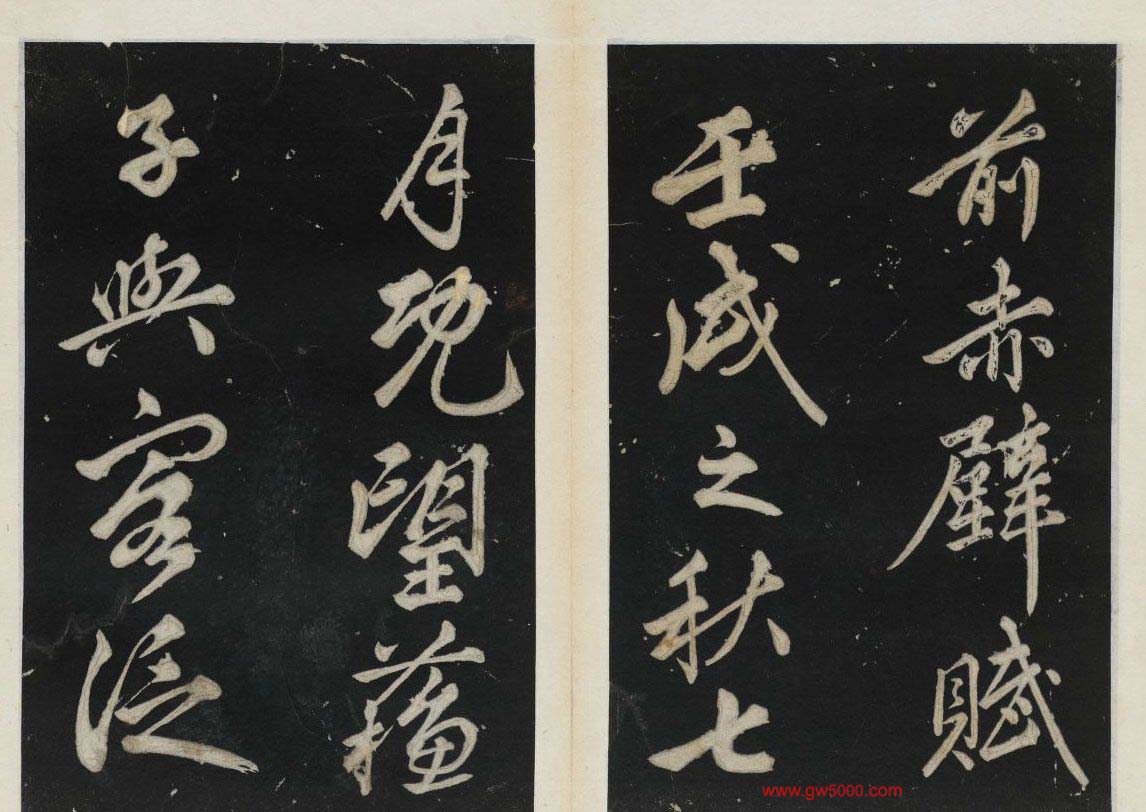 前赤壁賦
壬戌之秋七
月既望蘓
子與客泛
www.gw5000.com